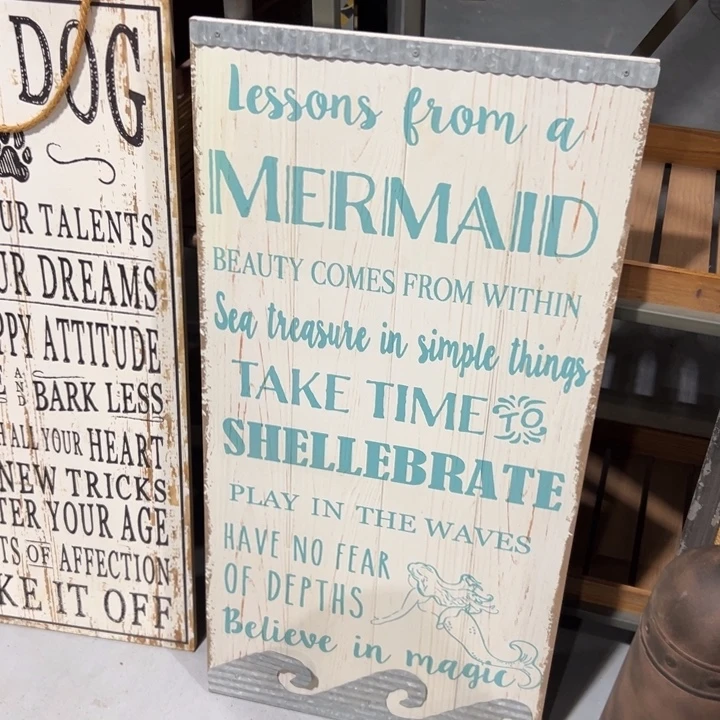 DOG
UR TALENTS
UR DREAMS
PPY ATTITUDE
AND BARK LESS
YOUR HEART
NEW TRICKS
YOUR AGE
OF AFFECTION
IT OFF
Lessons from a
MERMAID
BEAUTY COMES FROM WITHIN
Sea treasure in simple things
TAKE TIME TO
SHELLEBRATE
PLAY IN THE WAVES
HAVE NO FEAR
OF DEPTHS
Believe in magic